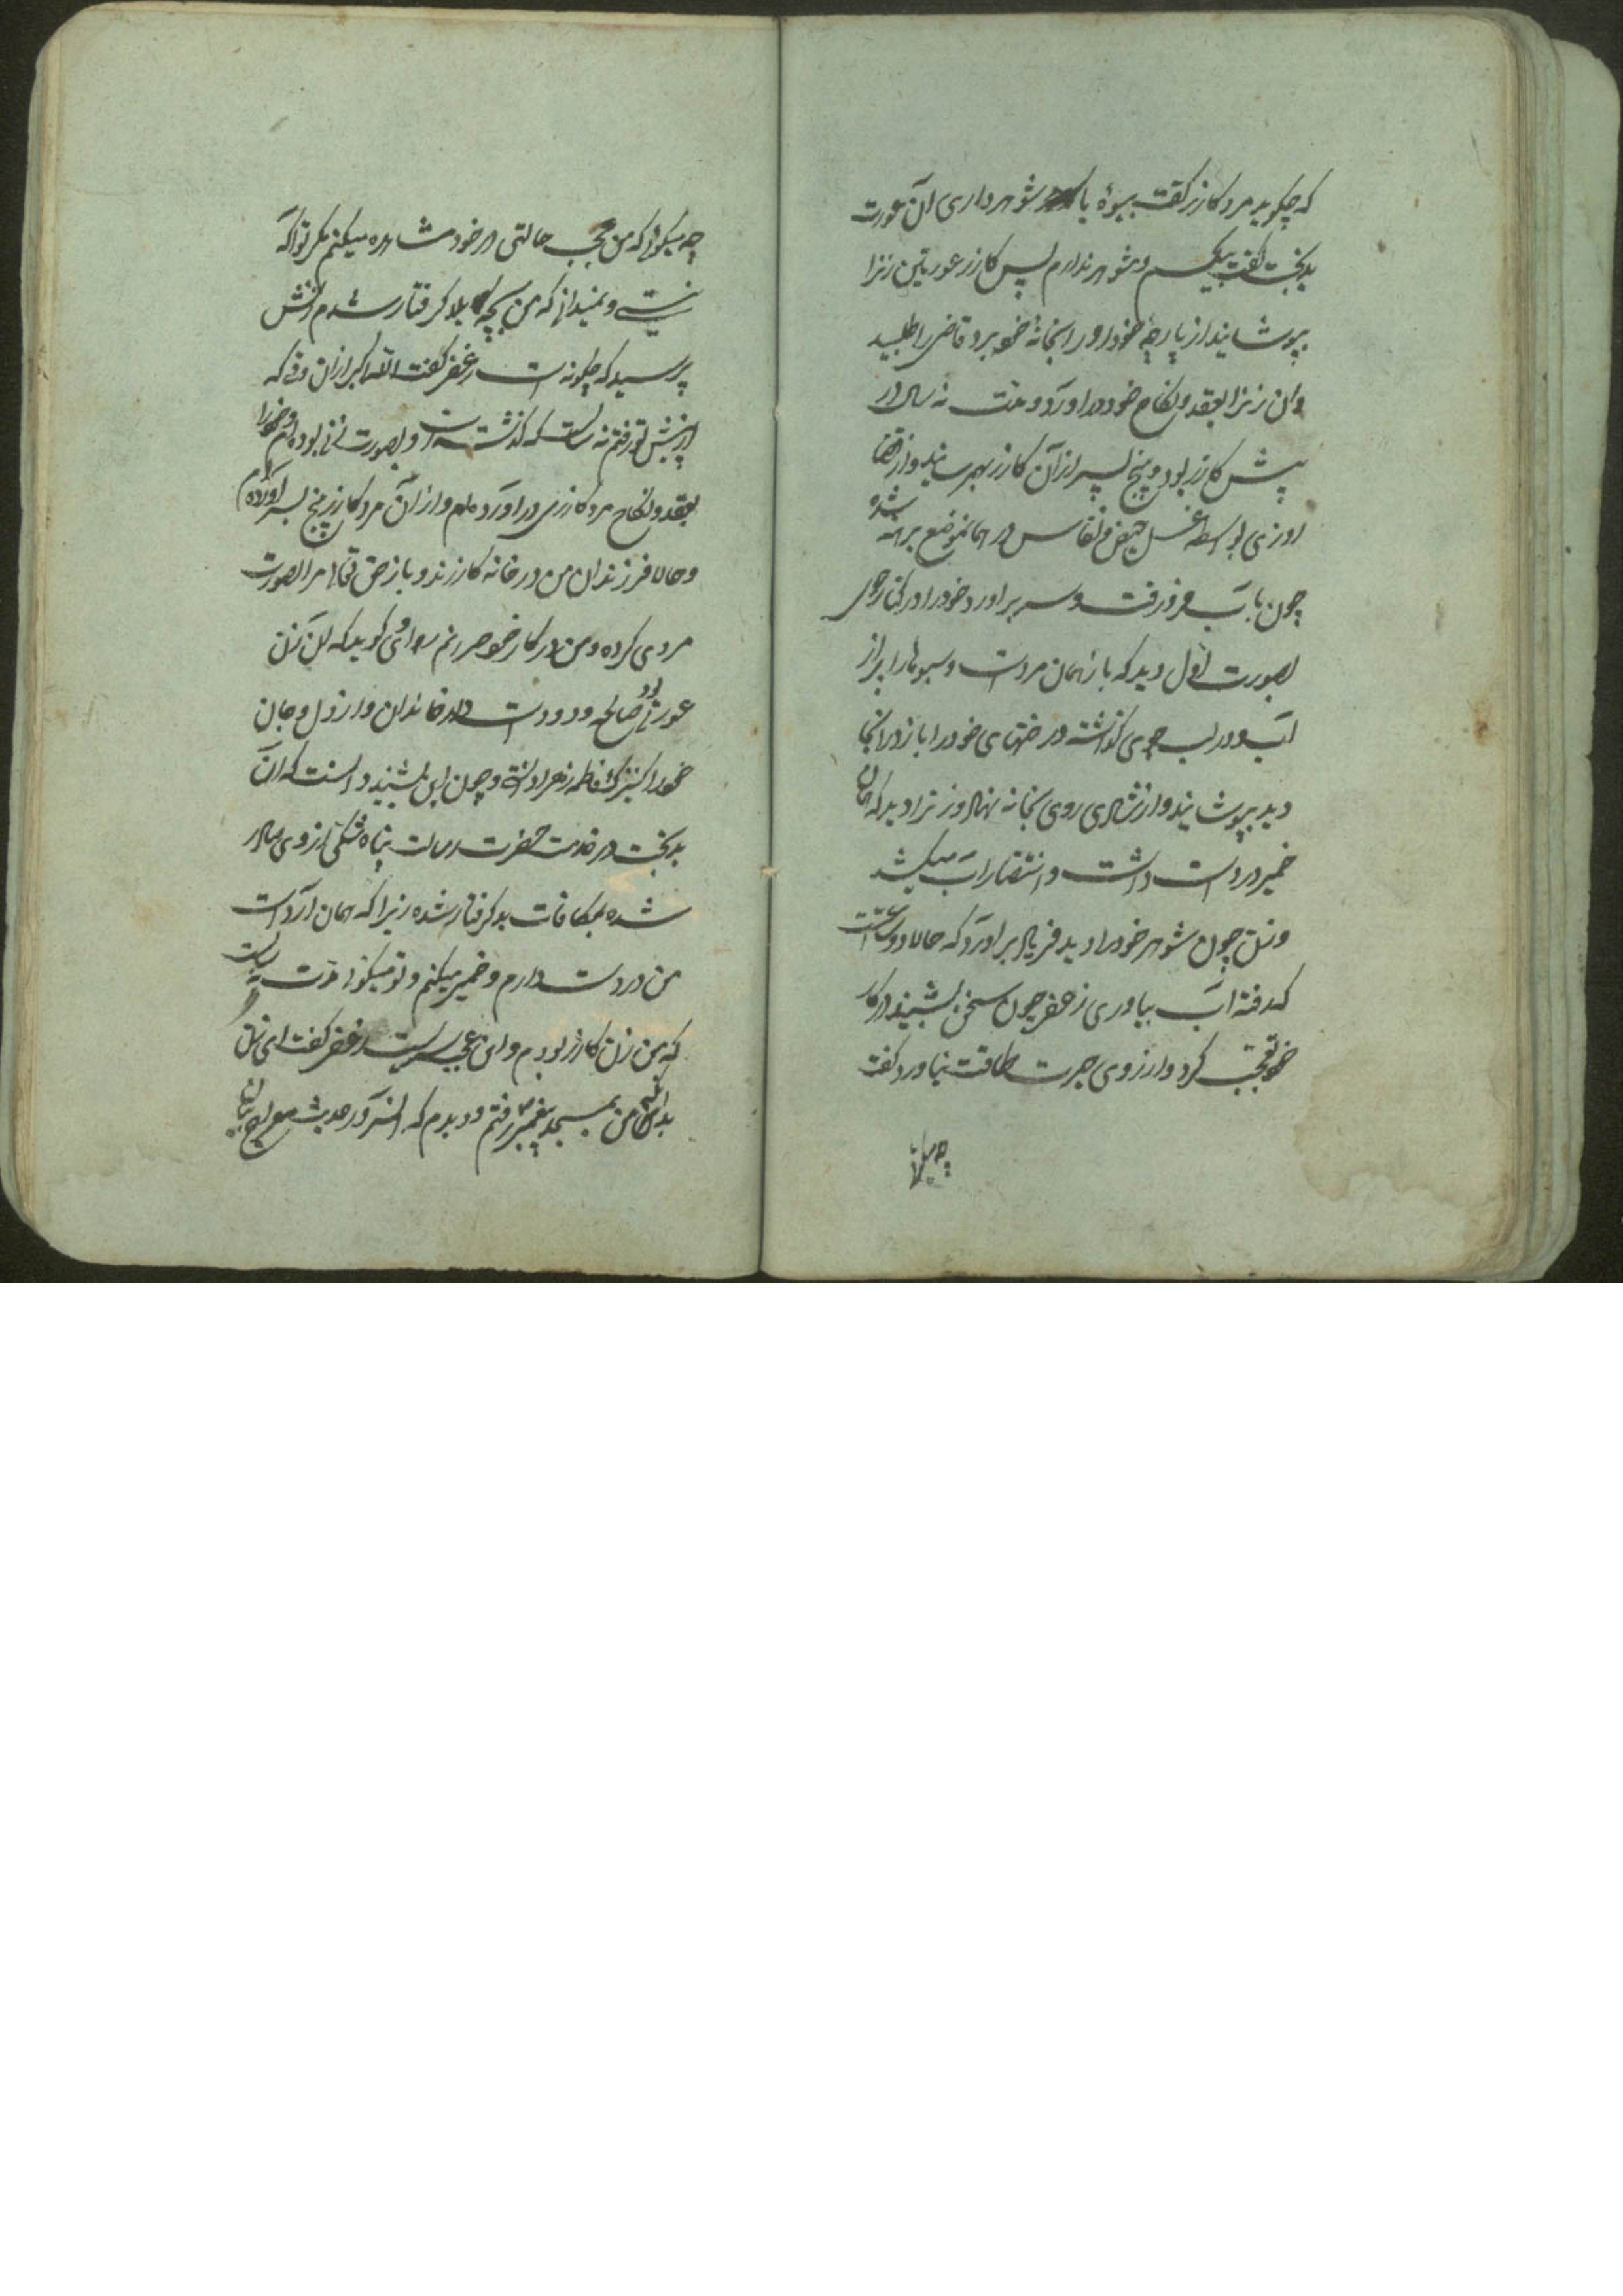 که چگوید مرد کازر گفت بیوهٔ یا شوهر داری آن عورت
بدبخت گفت بیکسم و شوهر ندارم پس کازر عورتین زنرا
بپوشانید از پارچهٔ خود او را بخانهٔ خو برد قاضی را طلبید
و آن زنرا بعقد و نکاح خود در اورد و مدت نه سال در
پیش کازر بود و پنج پسر از آن کازر بهم رسانید و از قضا
روزی بواسطه غسل حیض و نفاس در همانموضع برهنه شده
چون بآب فرو رفت و سر بر اورد خود را در کنار جوی
بصورت اول دید که باز همان مردست و سبو ها را پر از
آب و در لب جوی گذاشته و رختهای خود را باز در انجا
دید بپوشانید و از شادی روی بخانه نهاد و زنرا دید که همان
خمیر در دست داشت و انتظار اب میکشید
و زن چون شوهر خود را دید فریاد بر اورد که حالا دو ساعتست
که رفته اب بیاوری زغفر چون سخن بشنید در کار
خو تعجب کرد و از روی حیرت طاقت نیاورد گفت
چه میگوئی
چه میگوئی که من عجب حالتی در خود مشاهده میکنم مگر تو اگه
نیستی و نمیدانی که من بچه بلا گرفتار شدم زنش
پرسید که چگونه است زغفر گفت الله اکبر از ان وقتی که
از پیش تو رفتم نه سالست که گذشته است و بصورت زنی بوده ام و خود را
بعقد و نکاح مرد کازری در اورده ام و از آن مرد کازر پنج پسر آورده ام
و حالا فرزندان من در خانه کازرند و باز حق تعالی مرا بصورت
مردی کرده و من در کار خو حیرانم راوی گوید که آن زن
عورتی بود صالحه و دوست دار خاندان و از دل و جان
خود را کنیزک فاطمه زهرا دانستی و چون این بشنید دانست که آن
بدبخت در خدمت حضرت رسالت پناه شکی از وی صادر
شده بمکافات بد گرفتار شده زیرا که همان آرد است
من در دست دارم و خمیر میکنم و تو میگوئی مدت نه سالست
که من زن کازر بودم و این عجب سریست زغفر گفت ای زن
بدانکه من بمسجد پیغمبر رفتم و دیدم که انسرور حدیث معراج بیان